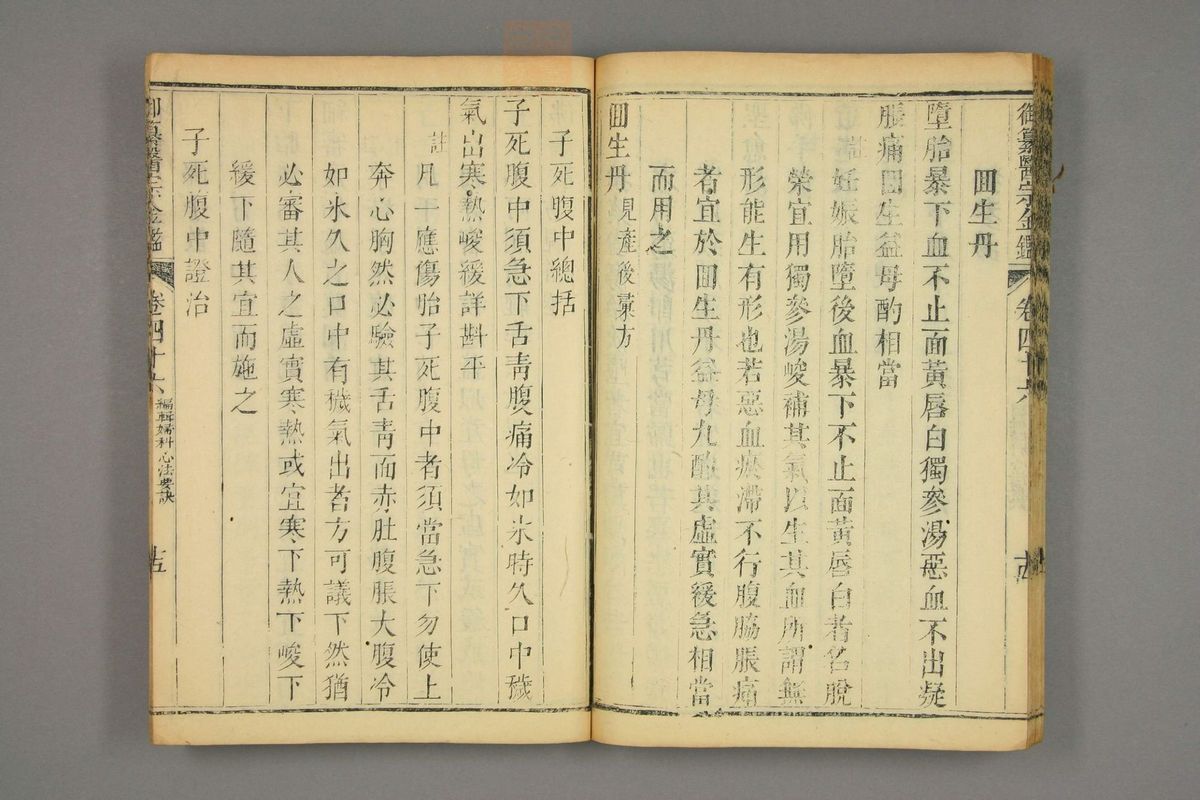 御纂醫宗金鑑 卷四十六
囬生丹
墮胎暴下血不止面黃唇白獨參湯惡血不出凝
脹痛囬生益母酌相當
註
妊娠胎墮後血暴下不止面黃唇白者名脫
榮宜用獨參湯峻補其氣以生其血所謂無
形能生有形也若惡血瘀滯不行腹脇脹痛
者宜於囬生丹益母丸酌其虛實緩急相當
而用之
囬生丹見產後彙方
子死腹中總括
子死腹中須急下舌靑腹痛冷如氷時久口中穢
氣出寒熱峻緩詳斟平
註
凡一應傷胎子死腹中者須當急下勿使上
奔心胸然必驗其舌靑面赤肚腹脹大腹冷
如氷久之口中有穢氣出者方可議下然猶
必審其人之虛實寒熱或宜寒下熱下峻下
緩下隨其宜而施之
子死腹中證治
御纂醫宗金鑑 卷四十六 編輯婦科心法要訣